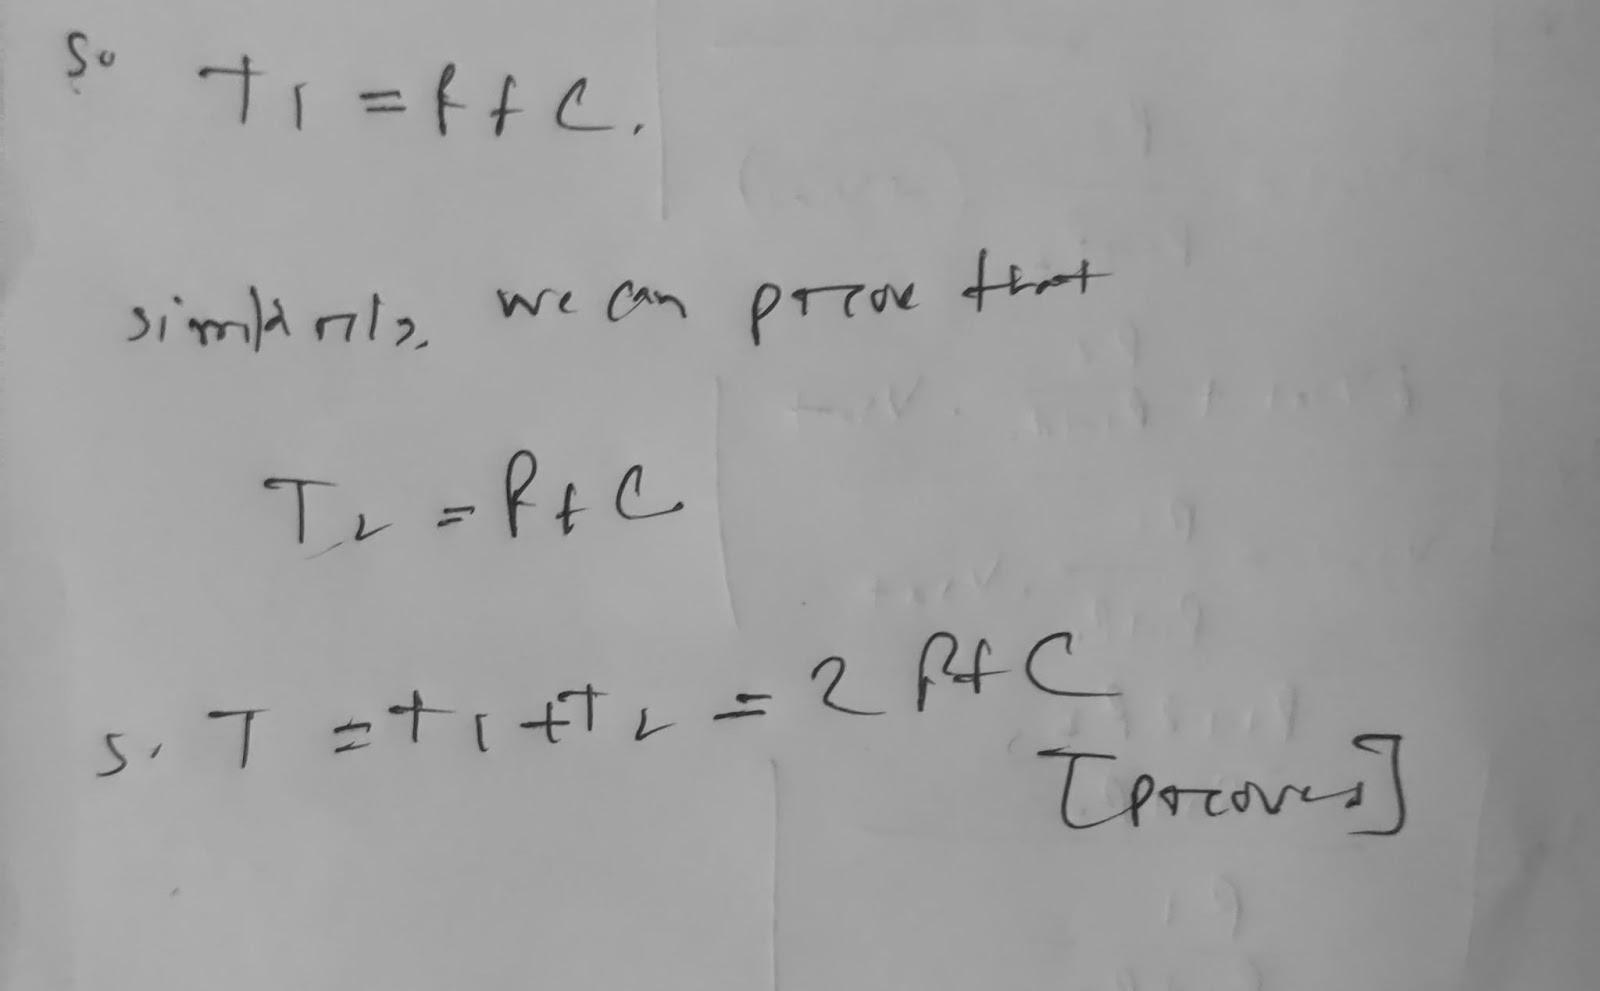 So T1 = RfC.
similarly, we can prove that
T2 = RfC
So T = T1 + T2 = 2 RfC
[proved]